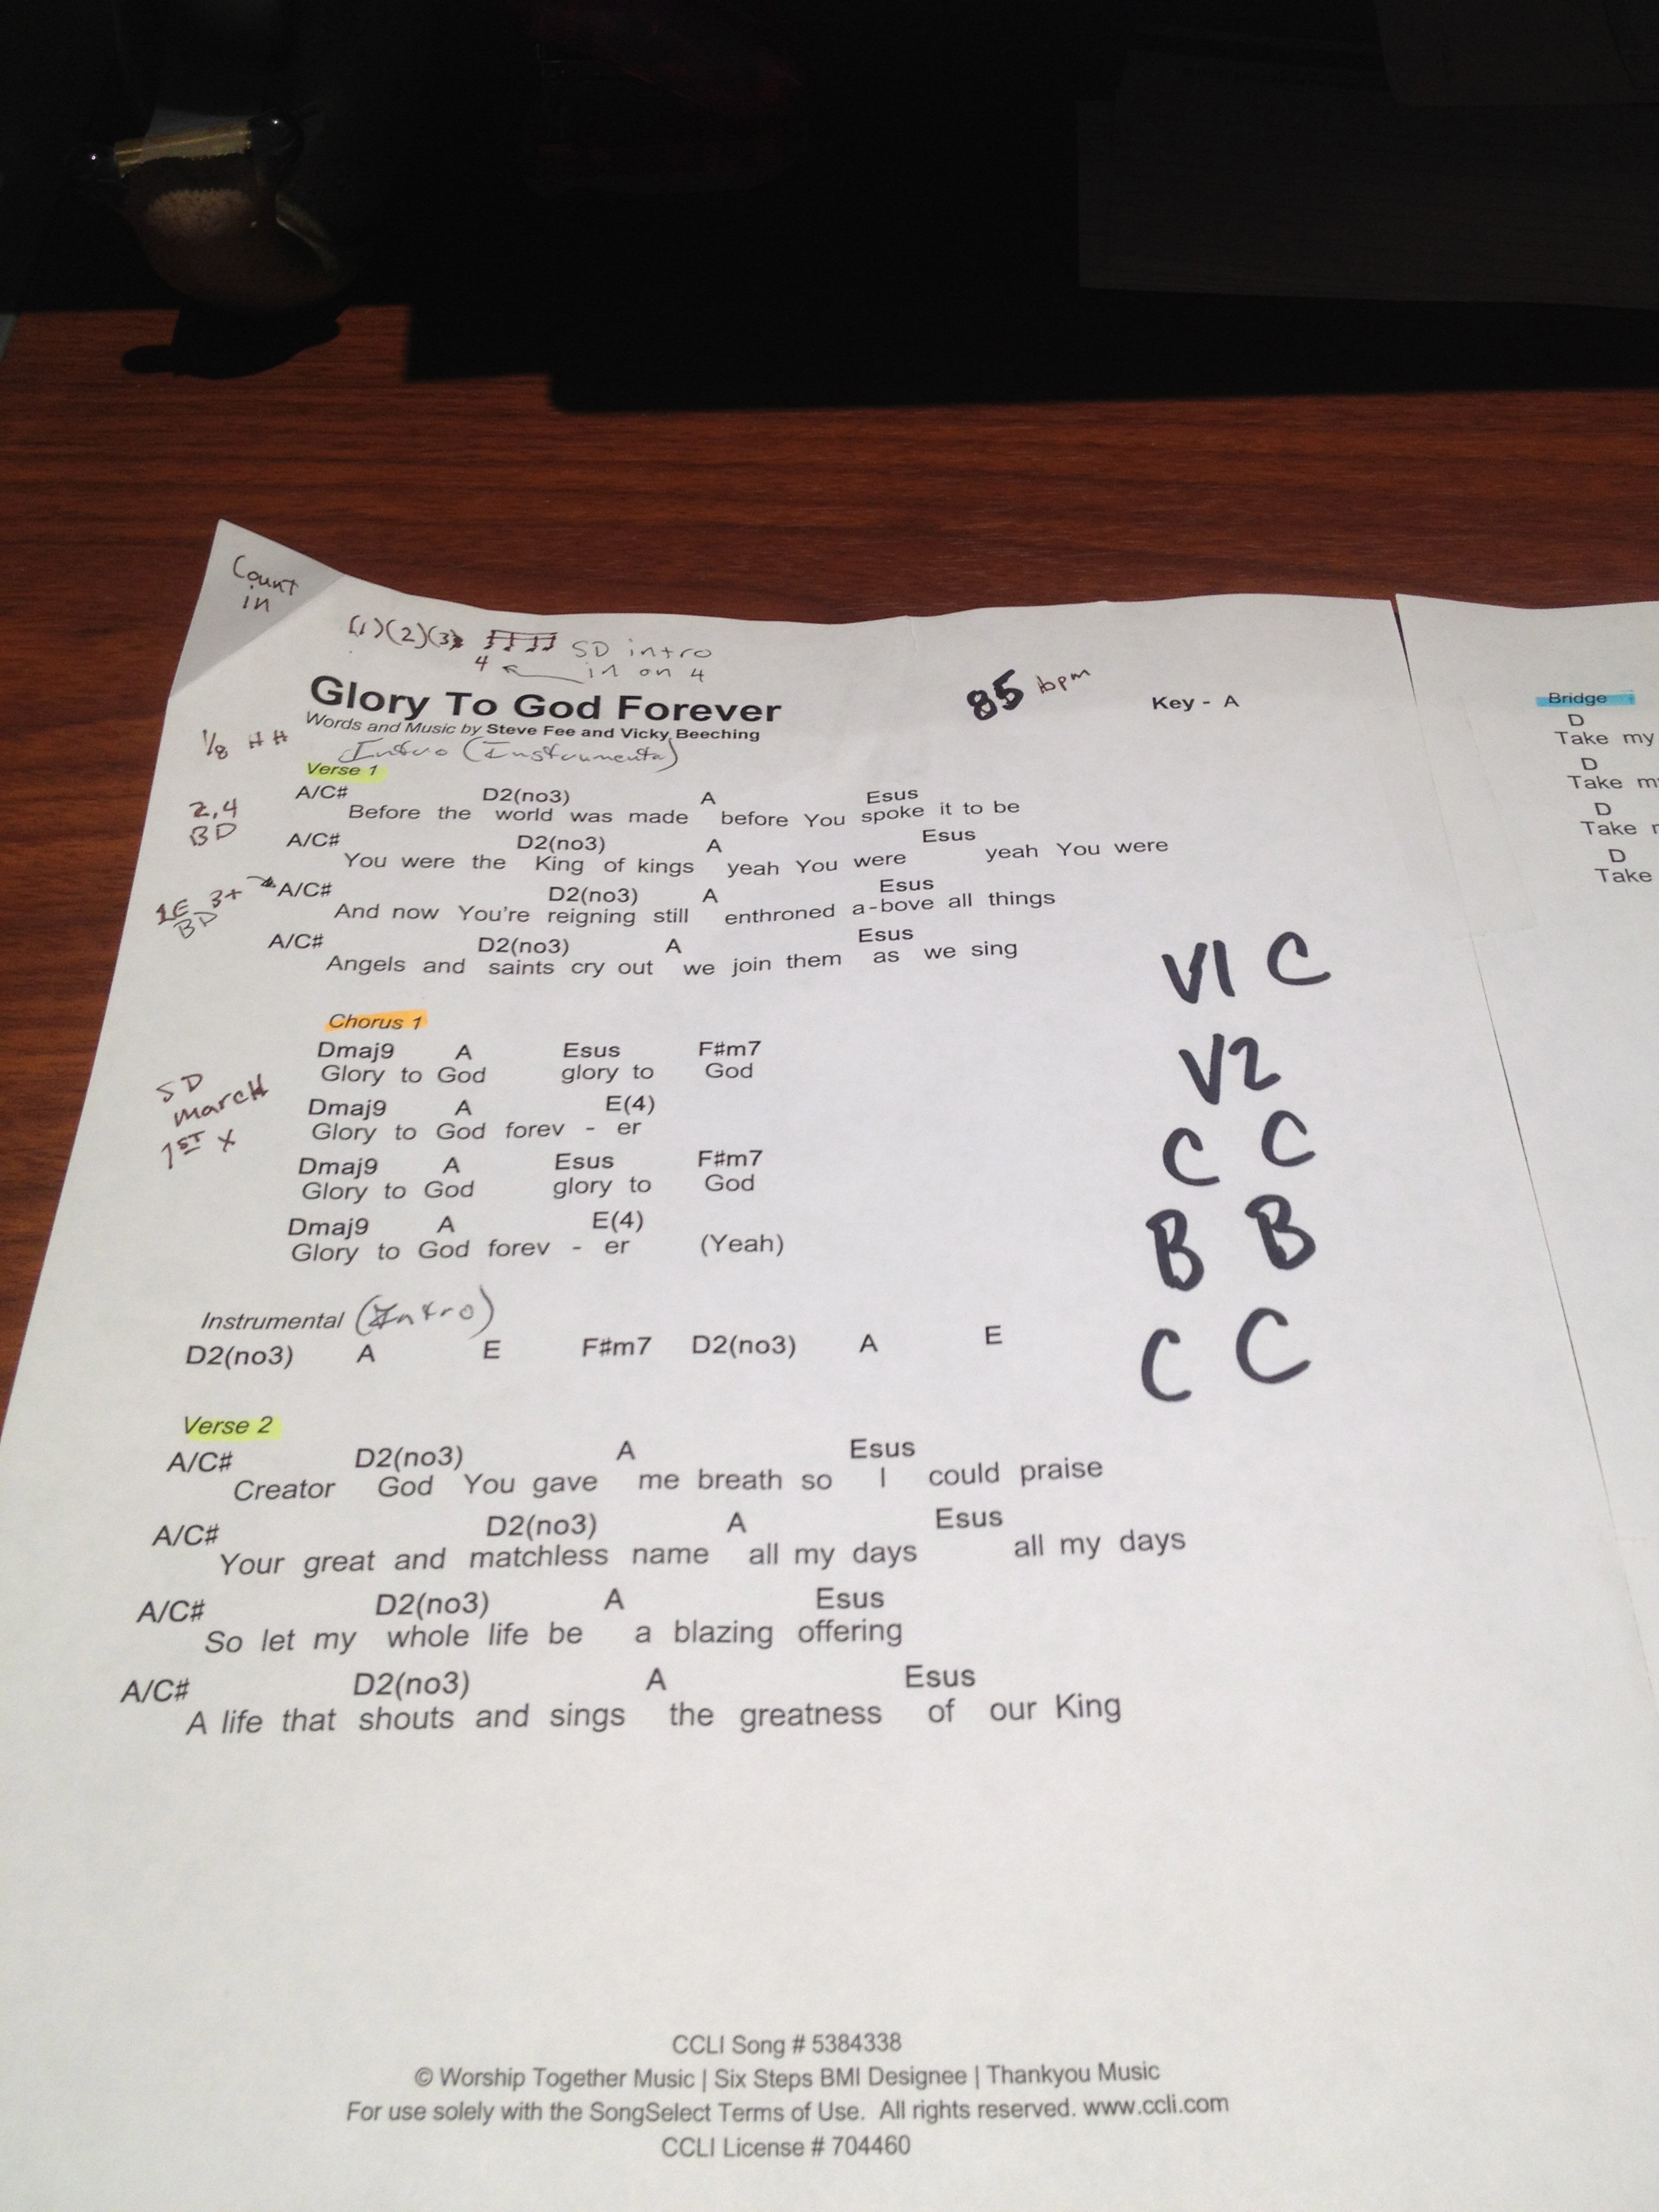 Count
in
(1)(2)(3)
SD intro
4 in on 4
Glory To God Forever
85 bpm
Key - A
Words and Music by Steve Fee and Vicky Beeching
1/8 HH
Intro (Instrumental)
Verse 1
A/C# D2(no3) A Esus
Before the world was made before You spoke it to be
2,4
BD
A/C# D2(no3) A Esus
You were the King of kings yeah You were yeah You were
1E 3+
BD
A/C# D2(no3) A Esus
And now You're reigning still enthroned a-bove all things
A/C# D2(no3) A Esus
Angels and saints cry out we join them as we sing
Chorus 1
Dmaj9 A Esus F#m7
Glory to God glory to God
SD
March
1ST X
Dmaj9 A E(4)
Glory to God forev - er
Dmaj9 A Esus F#m7
Glory to God glory to God
Dmaj9 A E(4)
Glory to God forev - er (Yeah)
Instrumental (Intro)
D2(no3) A E F#m7 D2(no3) A E
Verse 2
A/C# D2(no3) A Esus
Creator God You gave me breath so I could praise
A/C# D2(no3) A Esus
Your great and matchless name all my days all my days
A/C# D2(no3) A Esus
So let my whole life be a blazing offering
A/C# D2(no3) A Esus
A life that shouts and sings the greatness of our King
V1 C
V2
C C
B B
C C
CCLI Song # 5384338
© Worship Together Music | Six Steps BMI Designee | Thankyou Music
For use solely with the SongSelect Terms of Use. All rights reserved. www.ccli.com
CCLI License # 704460
Bridge
D
Take my
D
Take
D
Take
D
Take